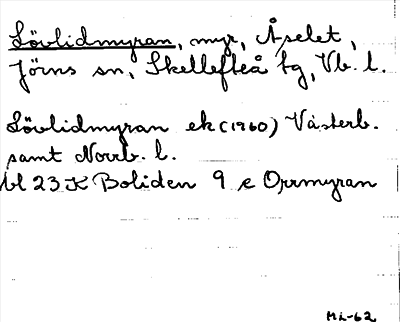 Lövlidmyran, myr, Åselet,
Jörns sn, Skellefteå tg, Vb. l.
Lövlidmyran ek (1960) Västerb.
samt Norrb. l.
bl 23 K Boliden 9 e Orrmyran
Mi-62